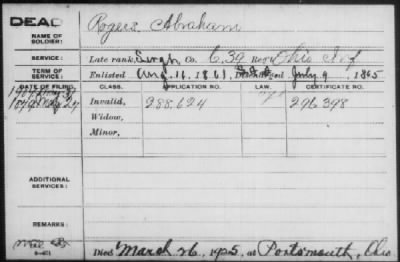 DEAD
NAME OF SOLDIER: Rogers, Abraham
SERVICE: Late rank, Sergt Co. C, 39 Reg't Ohio Inf
TERM OF SERVICE: Enlisted Aug. 16, 1861, Discharged July 9, 1865
DATE OF FILING. CLASS. APPLICATION NO. LAW. CERTIFICATE NO.
Invalid, 288.624 296,398
Widow,
Minor,
ADDITIONAL SERVICES:
REMARKS:
Died March 26, 1925, at Portsmouth, Ohio